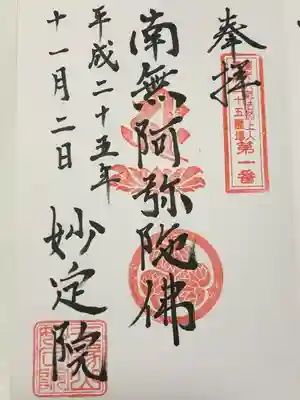 奉拝
第一番
南無阿弥陀佛
平成二十五年
十一月二日
妙定院